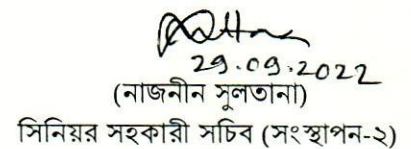 29.09.2022
(নাজনীন সুলতানা)
সিনিয়র সহকারী সচিব (সংস্থাপন-২)